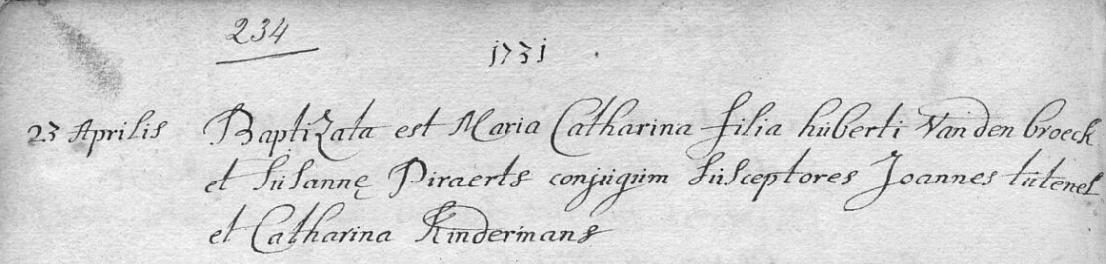 234
1731
23 Aprilis Baptizata est Maria Catharina filia hüberti Van den broeck
et süsannę Piraerts conjugüm süsceptores Joannes tütenel
et Catharina Kindermans